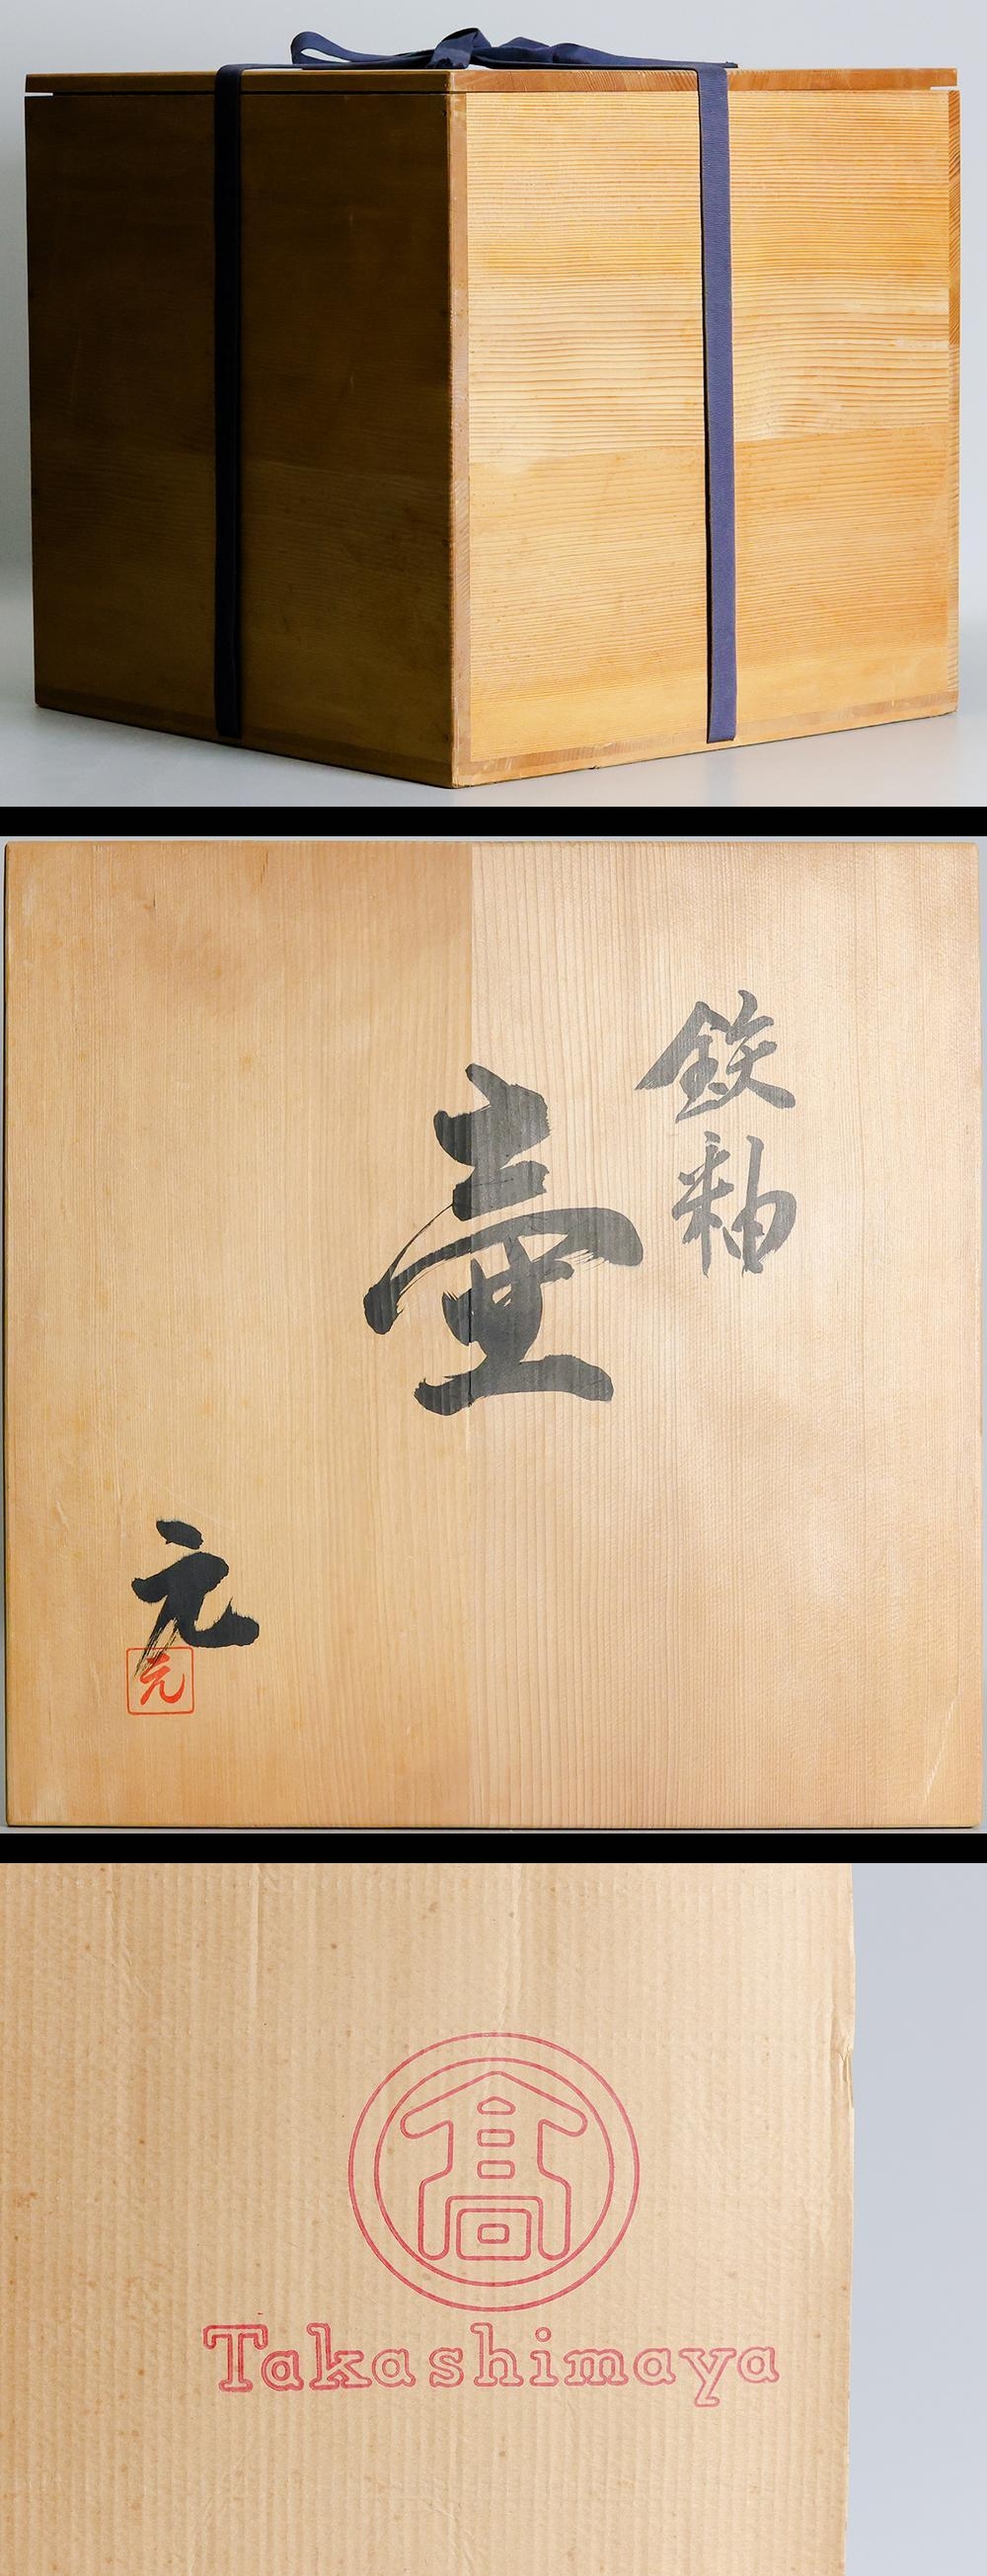 鉄釉
壷
元
元
髙
Takashimaya